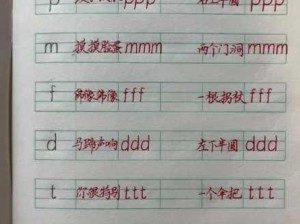 p ppp 右上半圆 ppp
m 摸摸脸蛋 mmm 两个门洞 mmm
f 佛像佛像 fff 一根拐杖 fff
d 马蹄声响 ddd 左下半圆 ddd
t 你很特别 ttt 一个伞把 ttt